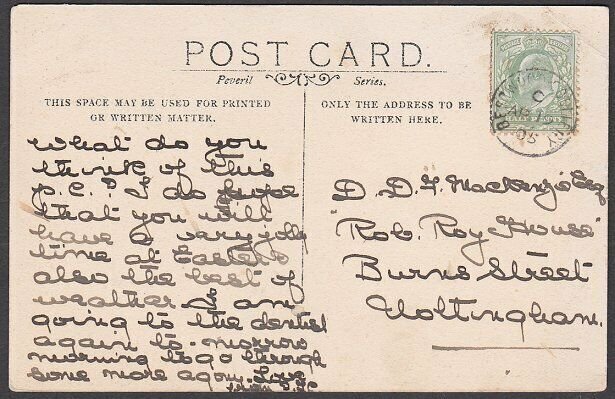 POST CARD.
Peveril Series.
THIS SPACE MAY BE USED FOR PRINTED
OR WRITTEN MATTER.
What do you
think of this
p.c.? I do hope
that you will
have a very jolly
time at Easter &
also the best of
weather I am
going to the dentist
again to-morrow
morning to go through
some more agony.
ONLY THE ADDRESS TO BE
WRITTEN HERE.
HALF PENNY
D. D. F. Mackenzie Esq
"Rob. Roy House"
Burns Street
Nottingham.